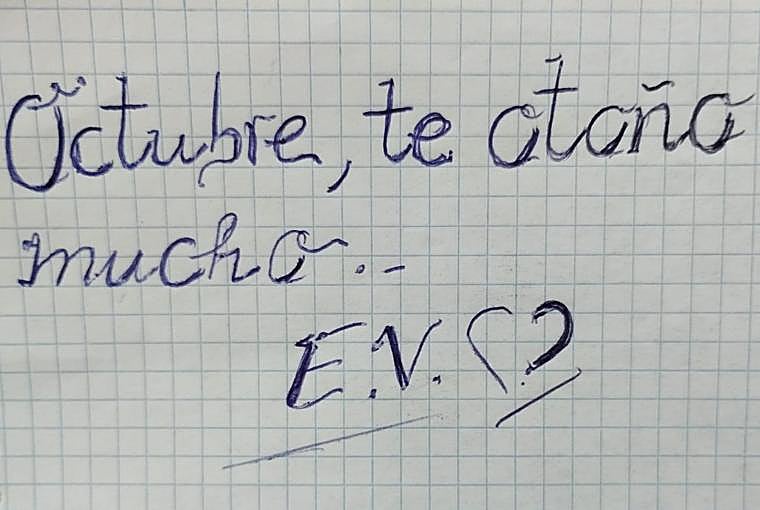 Octubre, te otoño
mucho...
E.V.